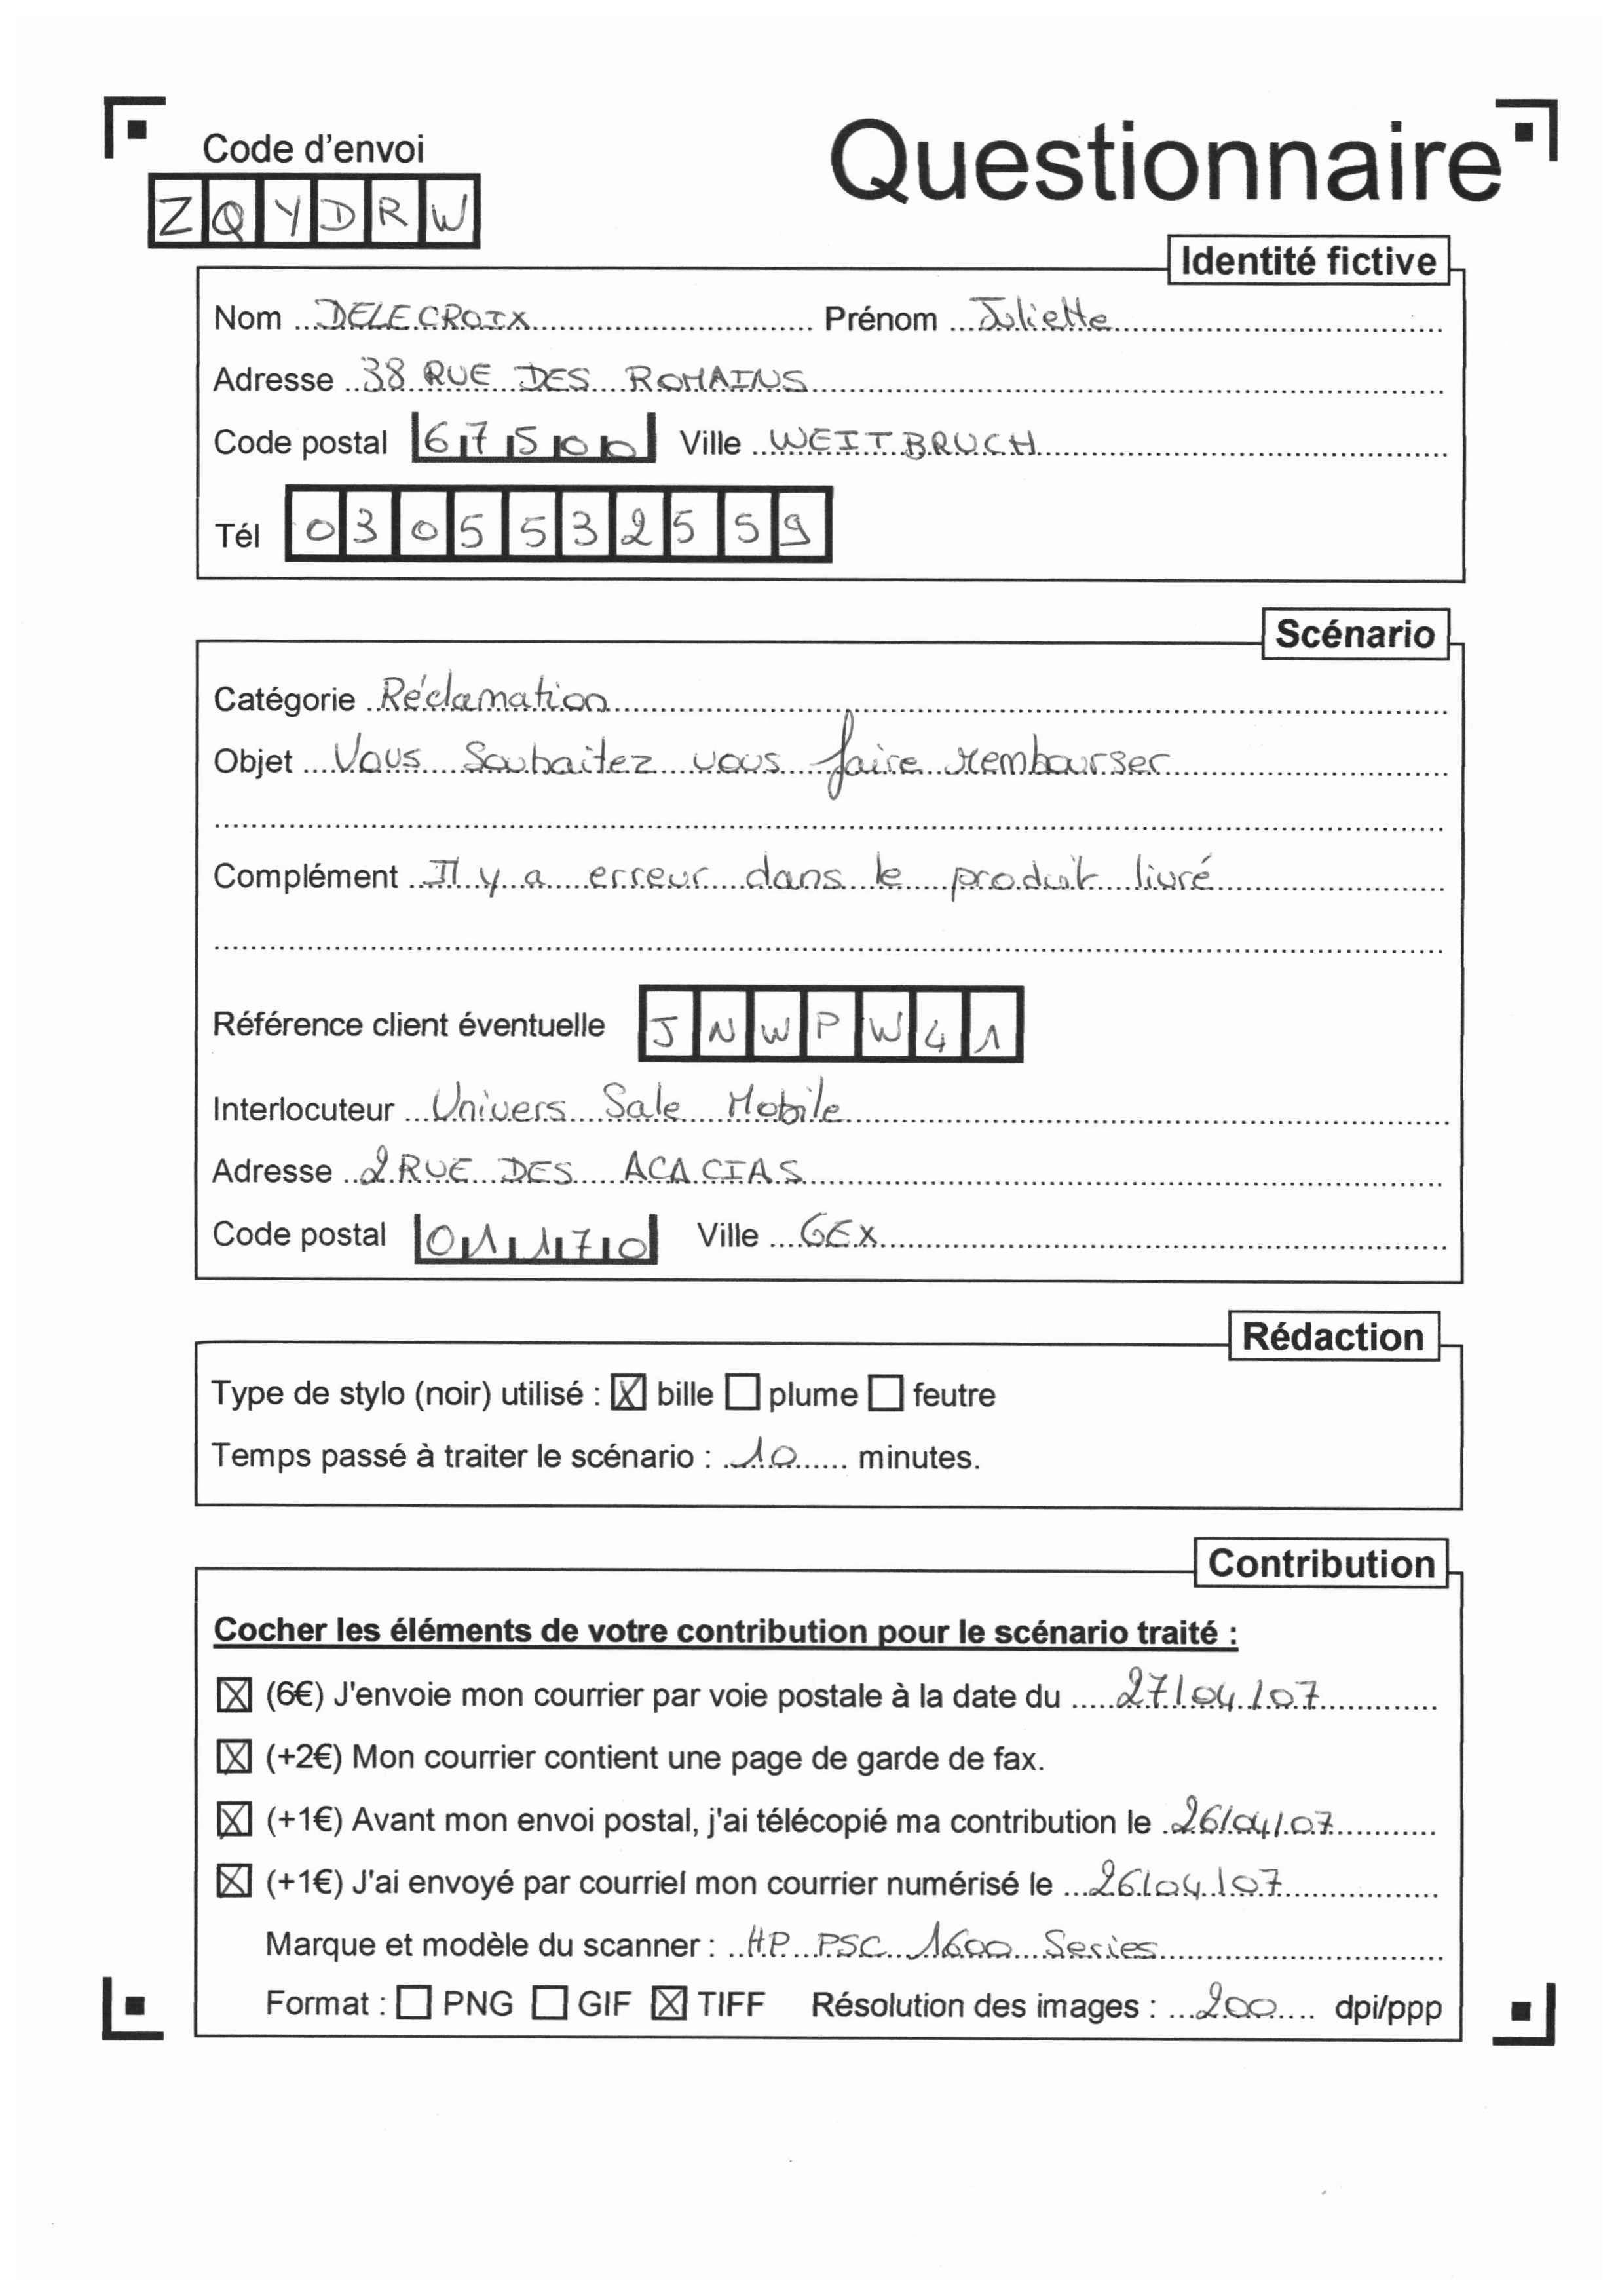 Code d'envoi
Questionnaire
ZQYDRW
Identité fictive
Nom DELECROIX Prénom Juliette
Adresse 38 RUE DES ROMAINS
Code postal 67500 Ville WEITBRUCH
Tél 0305532559
Scénario
Catégorie Réclamation
Objet Vous souhaitez vous faire rembourser
Complément Il y a erreur dans le produit livré
Référence client éventuelle JNWPW41
Interlocuteur Univers Sale Mobile
Adresse 2 RUE DES ACACIAS
Code postal 01170 Ville GEX
Rédaction
Type de stylo (noir) utilisé : ☒ bille ☐ plume ☐ feutre
Temps passé à traiter le scénario : 10 minutes.
Contribution
Cocher les éléments de votre contribution pour le scénario traité :
☒ (6€) J'envoie mon courrier par voie postale à la date du 27/04/07
☒ (+2€) Mon courrier contient une page de garde de fax.
☒ (+1€) Avant mon envoi postal, j'ai télécopié ma contribution le 26/04/07
☒ (+1€) J'ai envoyé par courriel mon courrier numérisé le 26/04/07
Marque et modèle du scanner : HP PSC 1600 Series
Format : ☐ PNG ☐ GIF ☒ TIFF Résolution des images : 200 dpi/ppp